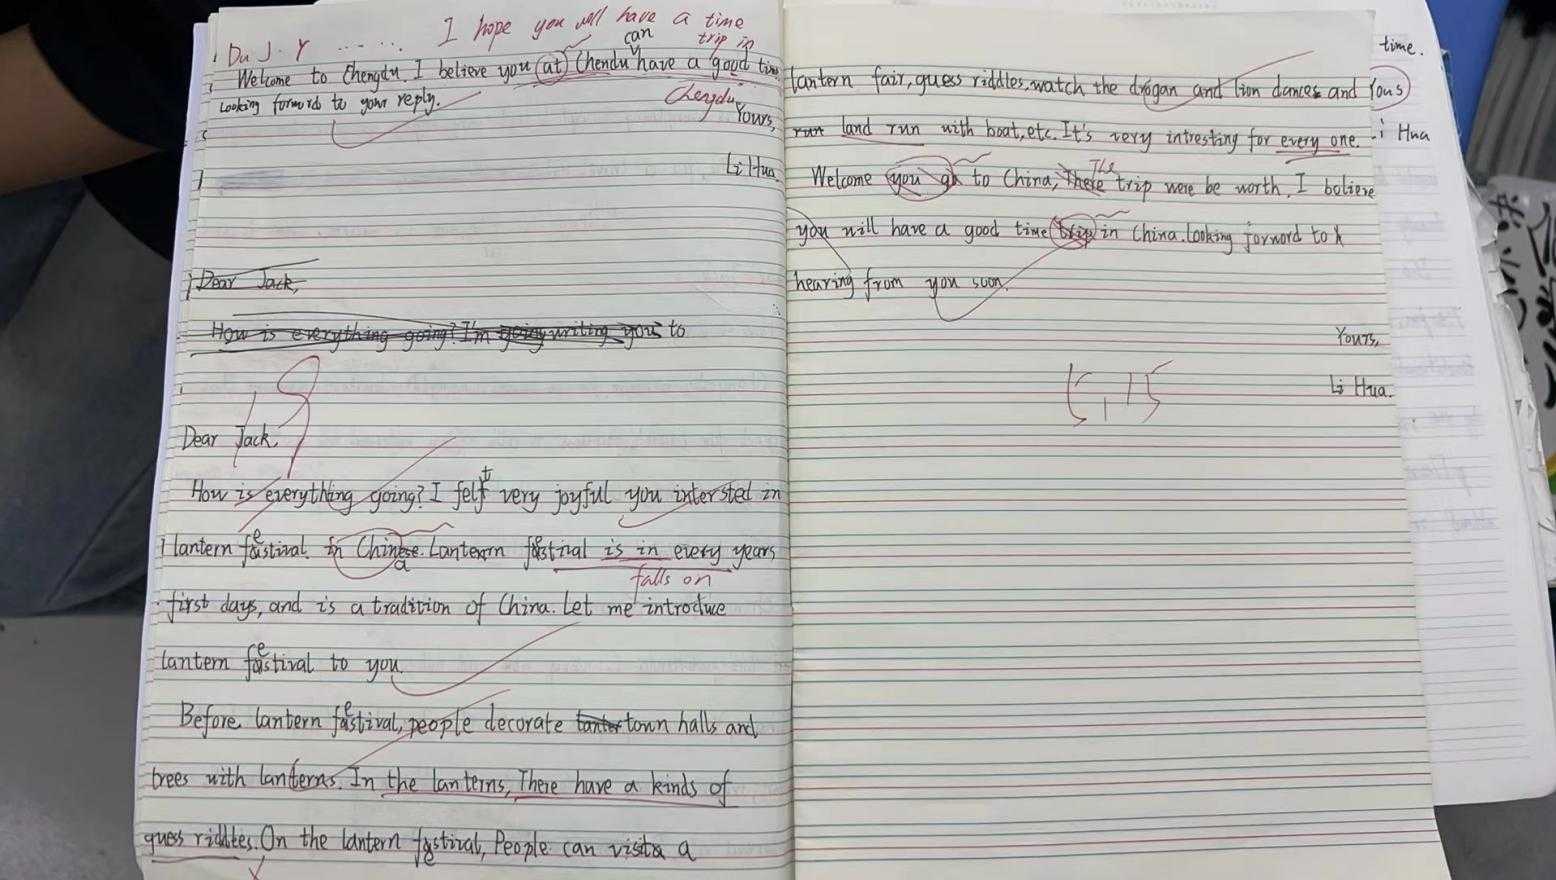 I hope you will have a time
Du J. Y ...... can trip in
Welcome to Chengdu I believe you at Chendu have a good time
Looking forward to your reply.
Chengdu
Yours,
Li Hua.
Dear Jack,
How is everything going? I'm going writing you to
19
Dear Jack,
How is everything going? I felt very joyful you intersted in
lantern festival in China. Lantern festival is in every years
falls on
first days, and is a tradition of China. Let me introduce
lantern festival to you.
Before lantern festival, people decorate town halls and
trees with lanterns. In the lanterns, There have a kinds of
guess riddles. On the lantern festival, People can visit a
lantern fair, guess riddles, watch the drogan and lion dances and
run land run with boat, etc. It's very intresting for every one.
The
Welcome you to China, There trip were be worth. I believe
you will have a good time trip in China. Looking forword to
hearing from you soon.
Yours,
Li Hua.
time.
Yous
i Hua